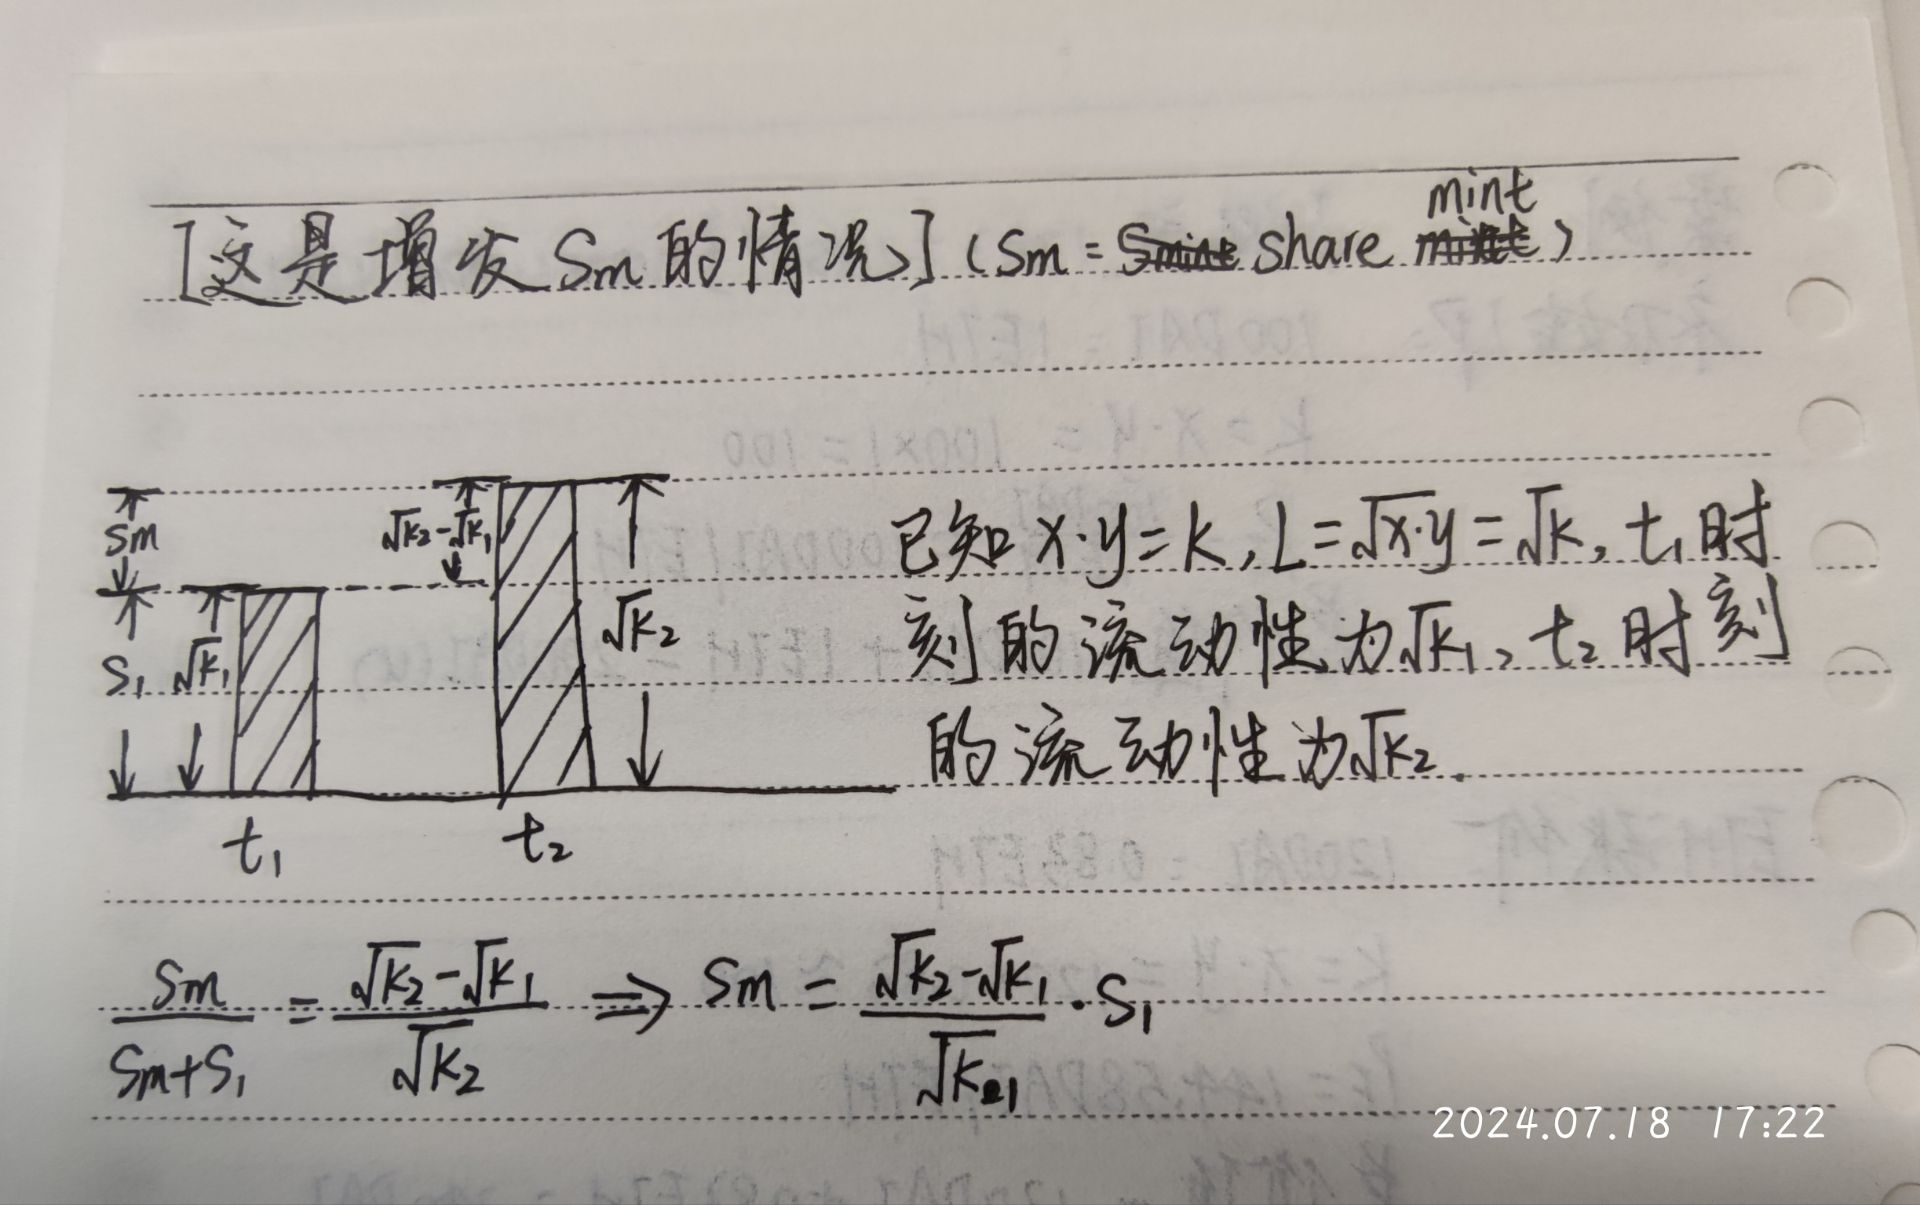 mint
[这是增发Sm的情况](Sm = share)
Sm
√K₂-√K₁
S₁
√K₁
√K₂
t₁
t₂
已知 x·y=k, L=√x·y=√k, t₁时
刻的流动性为√K₁, t₂时刻
的流动性为√K₂.
Sm/(Sm+S₁) = (√K₂-√K₁)/√K₂ ⇒ Sm = (√K₂-√K₁)/√K₁ · S₁
2024.07.18 17:22